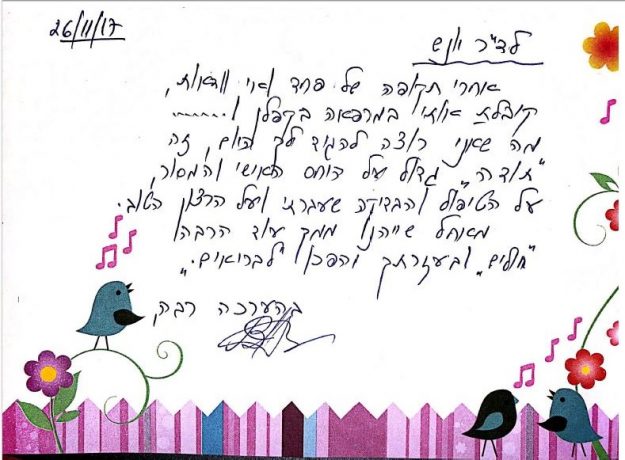 26/11/17
לד"ר יונש
אחרי תקופה של פחד ואי וודאות,
קיבלת אותי במרפאה בקפלן ו.........
מה שאני רוצה להגיד לך היום, זה
"תודה" גדול על היחס האישי והמסור,
על הטיפול והבדיקה שעברתי ועל הרצון הטוב.
מאחל שייהנו ממך עוד הרבה
"חולים" ובעזרתך יהפכו "לבריאים".
בהערכה רבה,